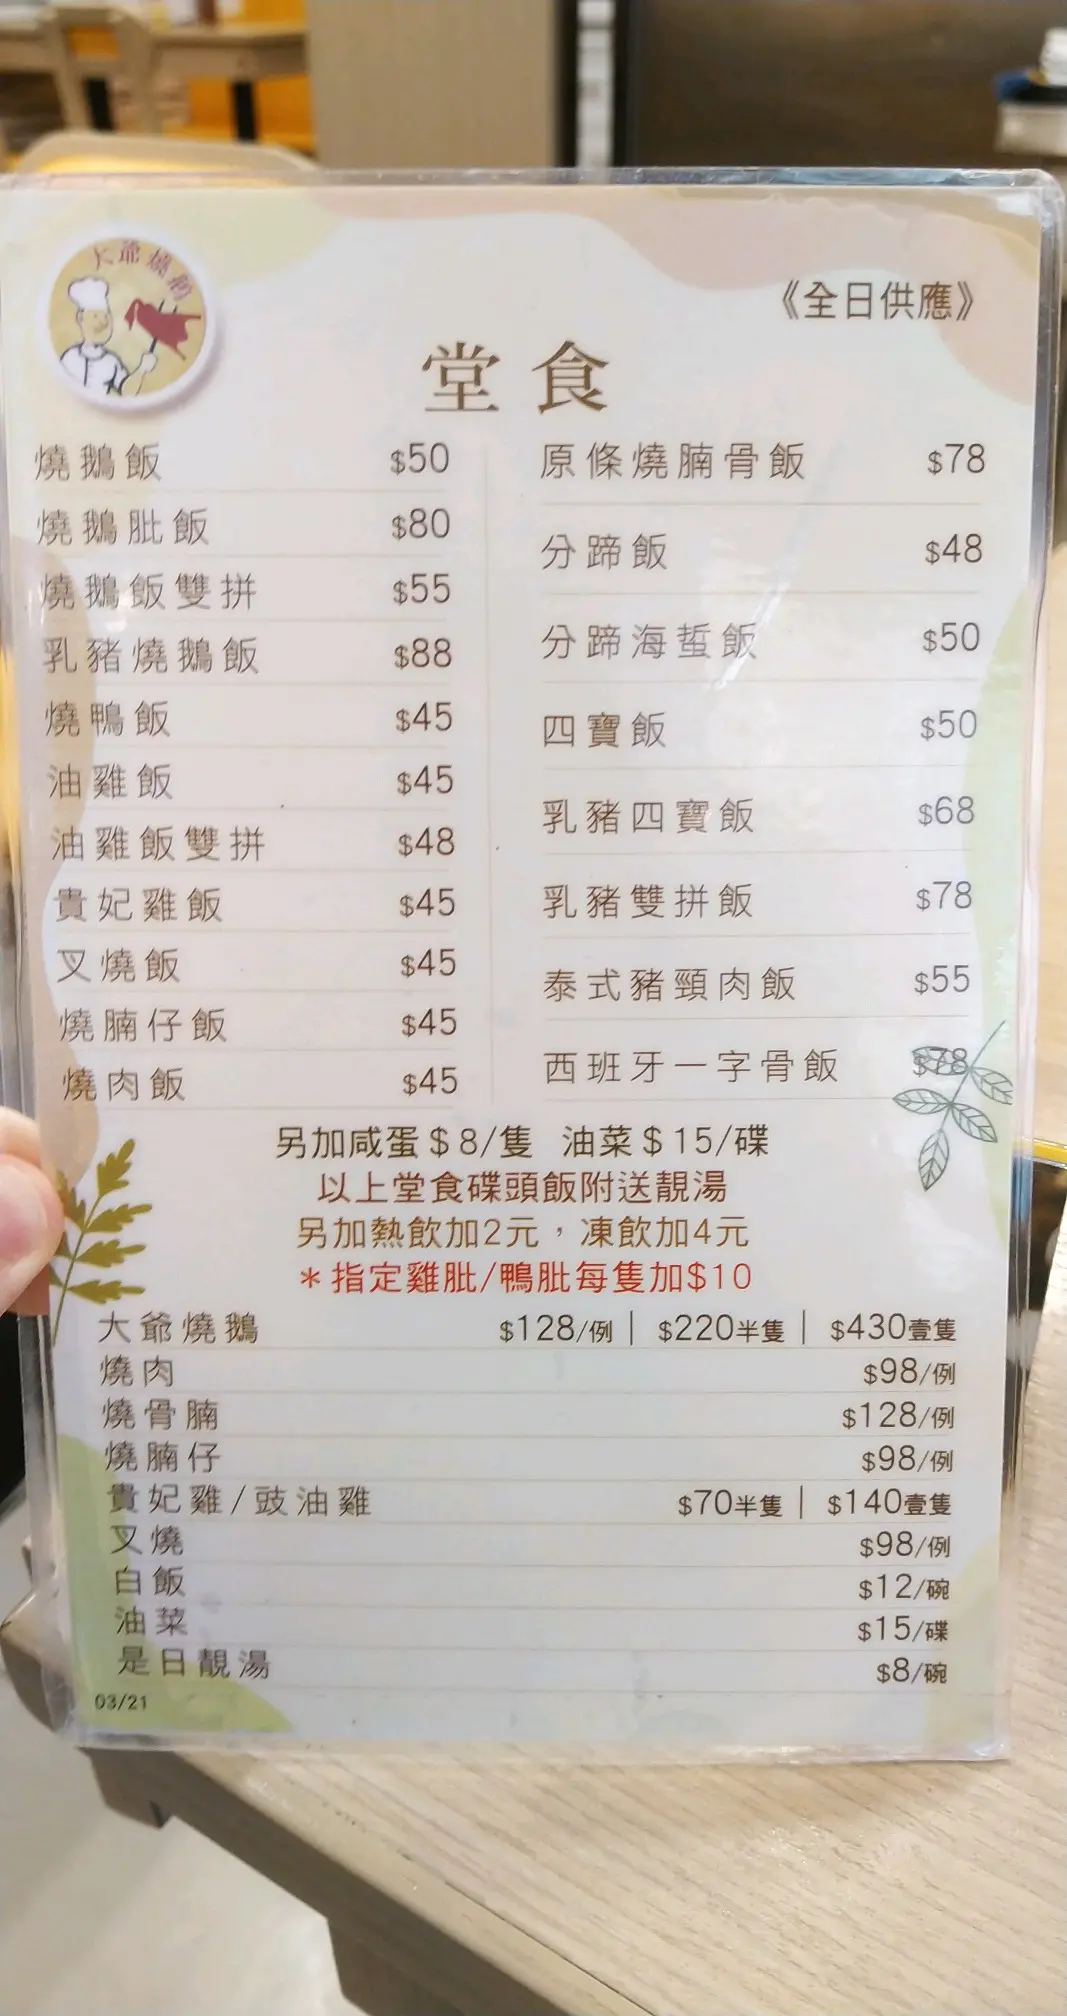 大爺燒鵝
《全日供應》
堂食
燒鵝飯 $50
燒鵝肶飯 $80
燒鵝飯雙拼 $55
乳豬燒鵝飯 $88
燒鴨飯 $45
油雞飯 $45
油雞飯雙拼 $48
貴妃雞飯 $45
叉燒飯 $45
燒腩仔飯 $45
燒肉飯 $45
原條燒腩骨飯 $78
分蹄飯 $48
分蹄海蜇飯 $50
四寶飯 $50
乳豬四寶飯 $68
乳豬雙拼飯 $78
泰式豬頸肉飯 $55
西班牙一字骨飯 $78
另加咸蛋$8/隻 油菜$15/碟
以上堂食碟頭飯附送靚湯
另加熱飲加2元，凍飲加4元
*指定雞肶/鴨肶每隻加$10
大爺燒鵝 $128/例 | $220半隻 | $430壹隻
燒肉 $98/例
燒骨腩 $128/例
燒腩仔 $98/例
貴妃雞/豉油雞 $70半隻 | $140壹隻
叉燒 $98/例
白飯 $12/碗
油菜 $15/碟
是日靚湯 $8/碗
03/21